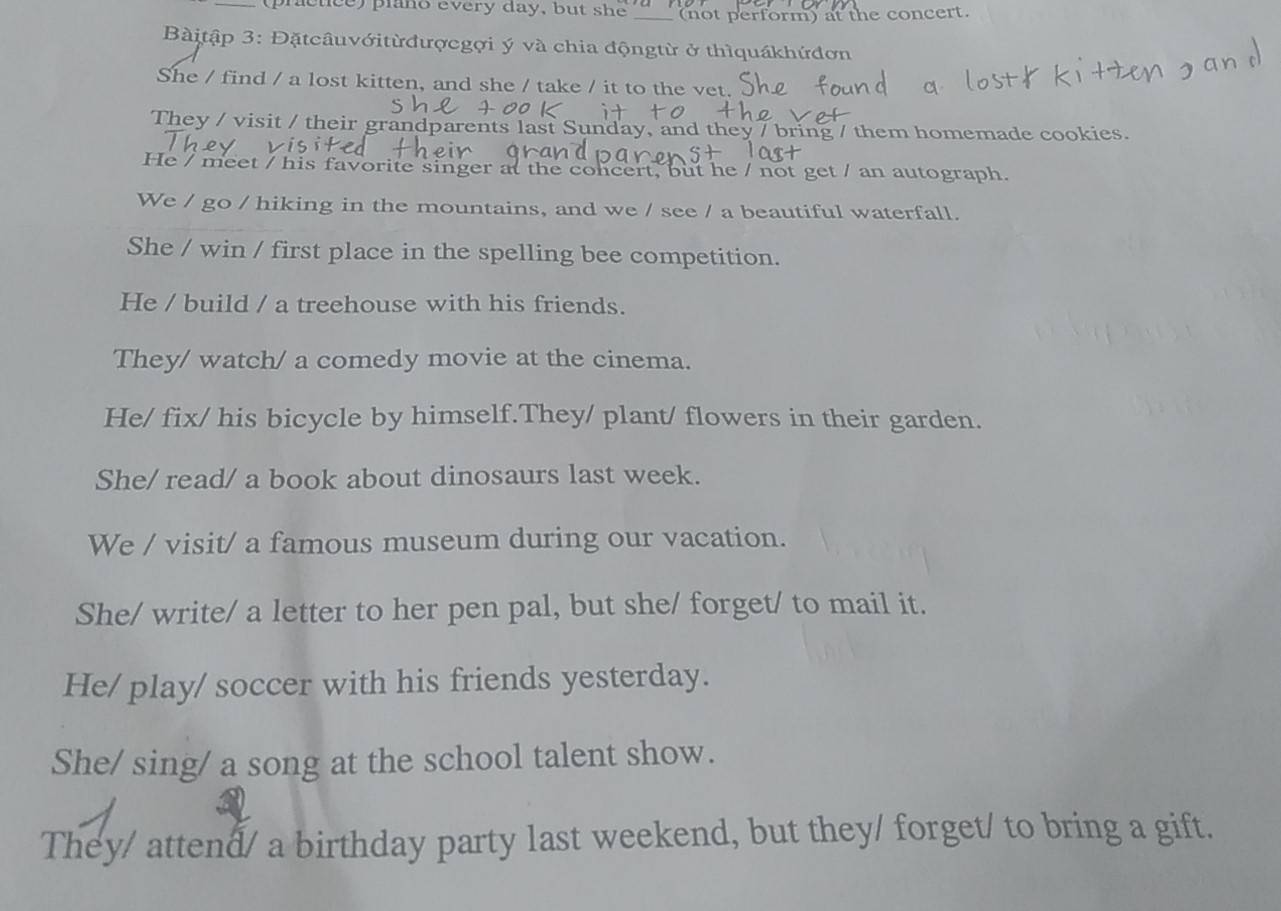 (practice) piano every day, but she ____ (not perform) at the concert.
Bàitập 3: Đặtcâuvớitừđượcgợi ý và chia độngtừ ở thìquákhứđơn
She / find / a lost kitten, and she / take / it to the vet. She found a lost kitten, and
she took it to the vet
They / visit / their grandparents last Sunday, and they / bring / them homemade cookies.
They visited their grandparenst last
He / meet / his favorite singer at the concert, but he / not get / an autograph.
We / go / hiking in the mountains, and we / see / a beautiful waterfall.
She / win / first place in the spelling bee competition.
He / build / a treehouse with his friends.
They/ watch/ a comedy movie at the cinema.
He/ fix/ his bicycle by himself.They/ plant/ flowers in their garden.
She/ read/ a book about dinosaurs last week.
We / visit/ a famous museum during our vacation.
She/ write/ a letter to her pen pal, but she/ forget/ to mail it.
He/ play/ soccer with his friends yesterday.
She/ sing/ a song at the school talent show.
They/ attend/ a birthday party last weekend, but they/ forget/ to bring a gift.